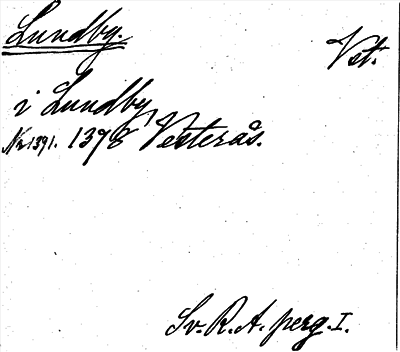 Lundby.
Vst.
i Lundby
Nr 1391. 1378 Vesterås.
Sv. R. A. perg. I.